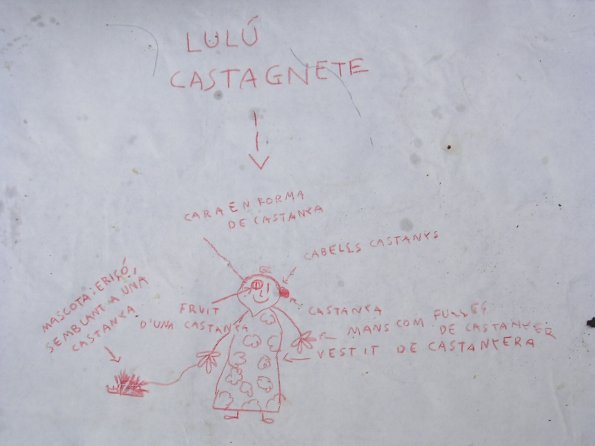 LULÚ
CASTAGNETE
CARA EN FORMA
DE CASTANYA
CABELLS CASTANYS
MASCOTA: ERIÇÓ,
SEMBLANT A UNA
CASTANYA
FRUIT
D'UNA CASTANYA
CASTANYA
MANS COM FULLES
DE CASTANYER
VESTIT DE CASTANYERA